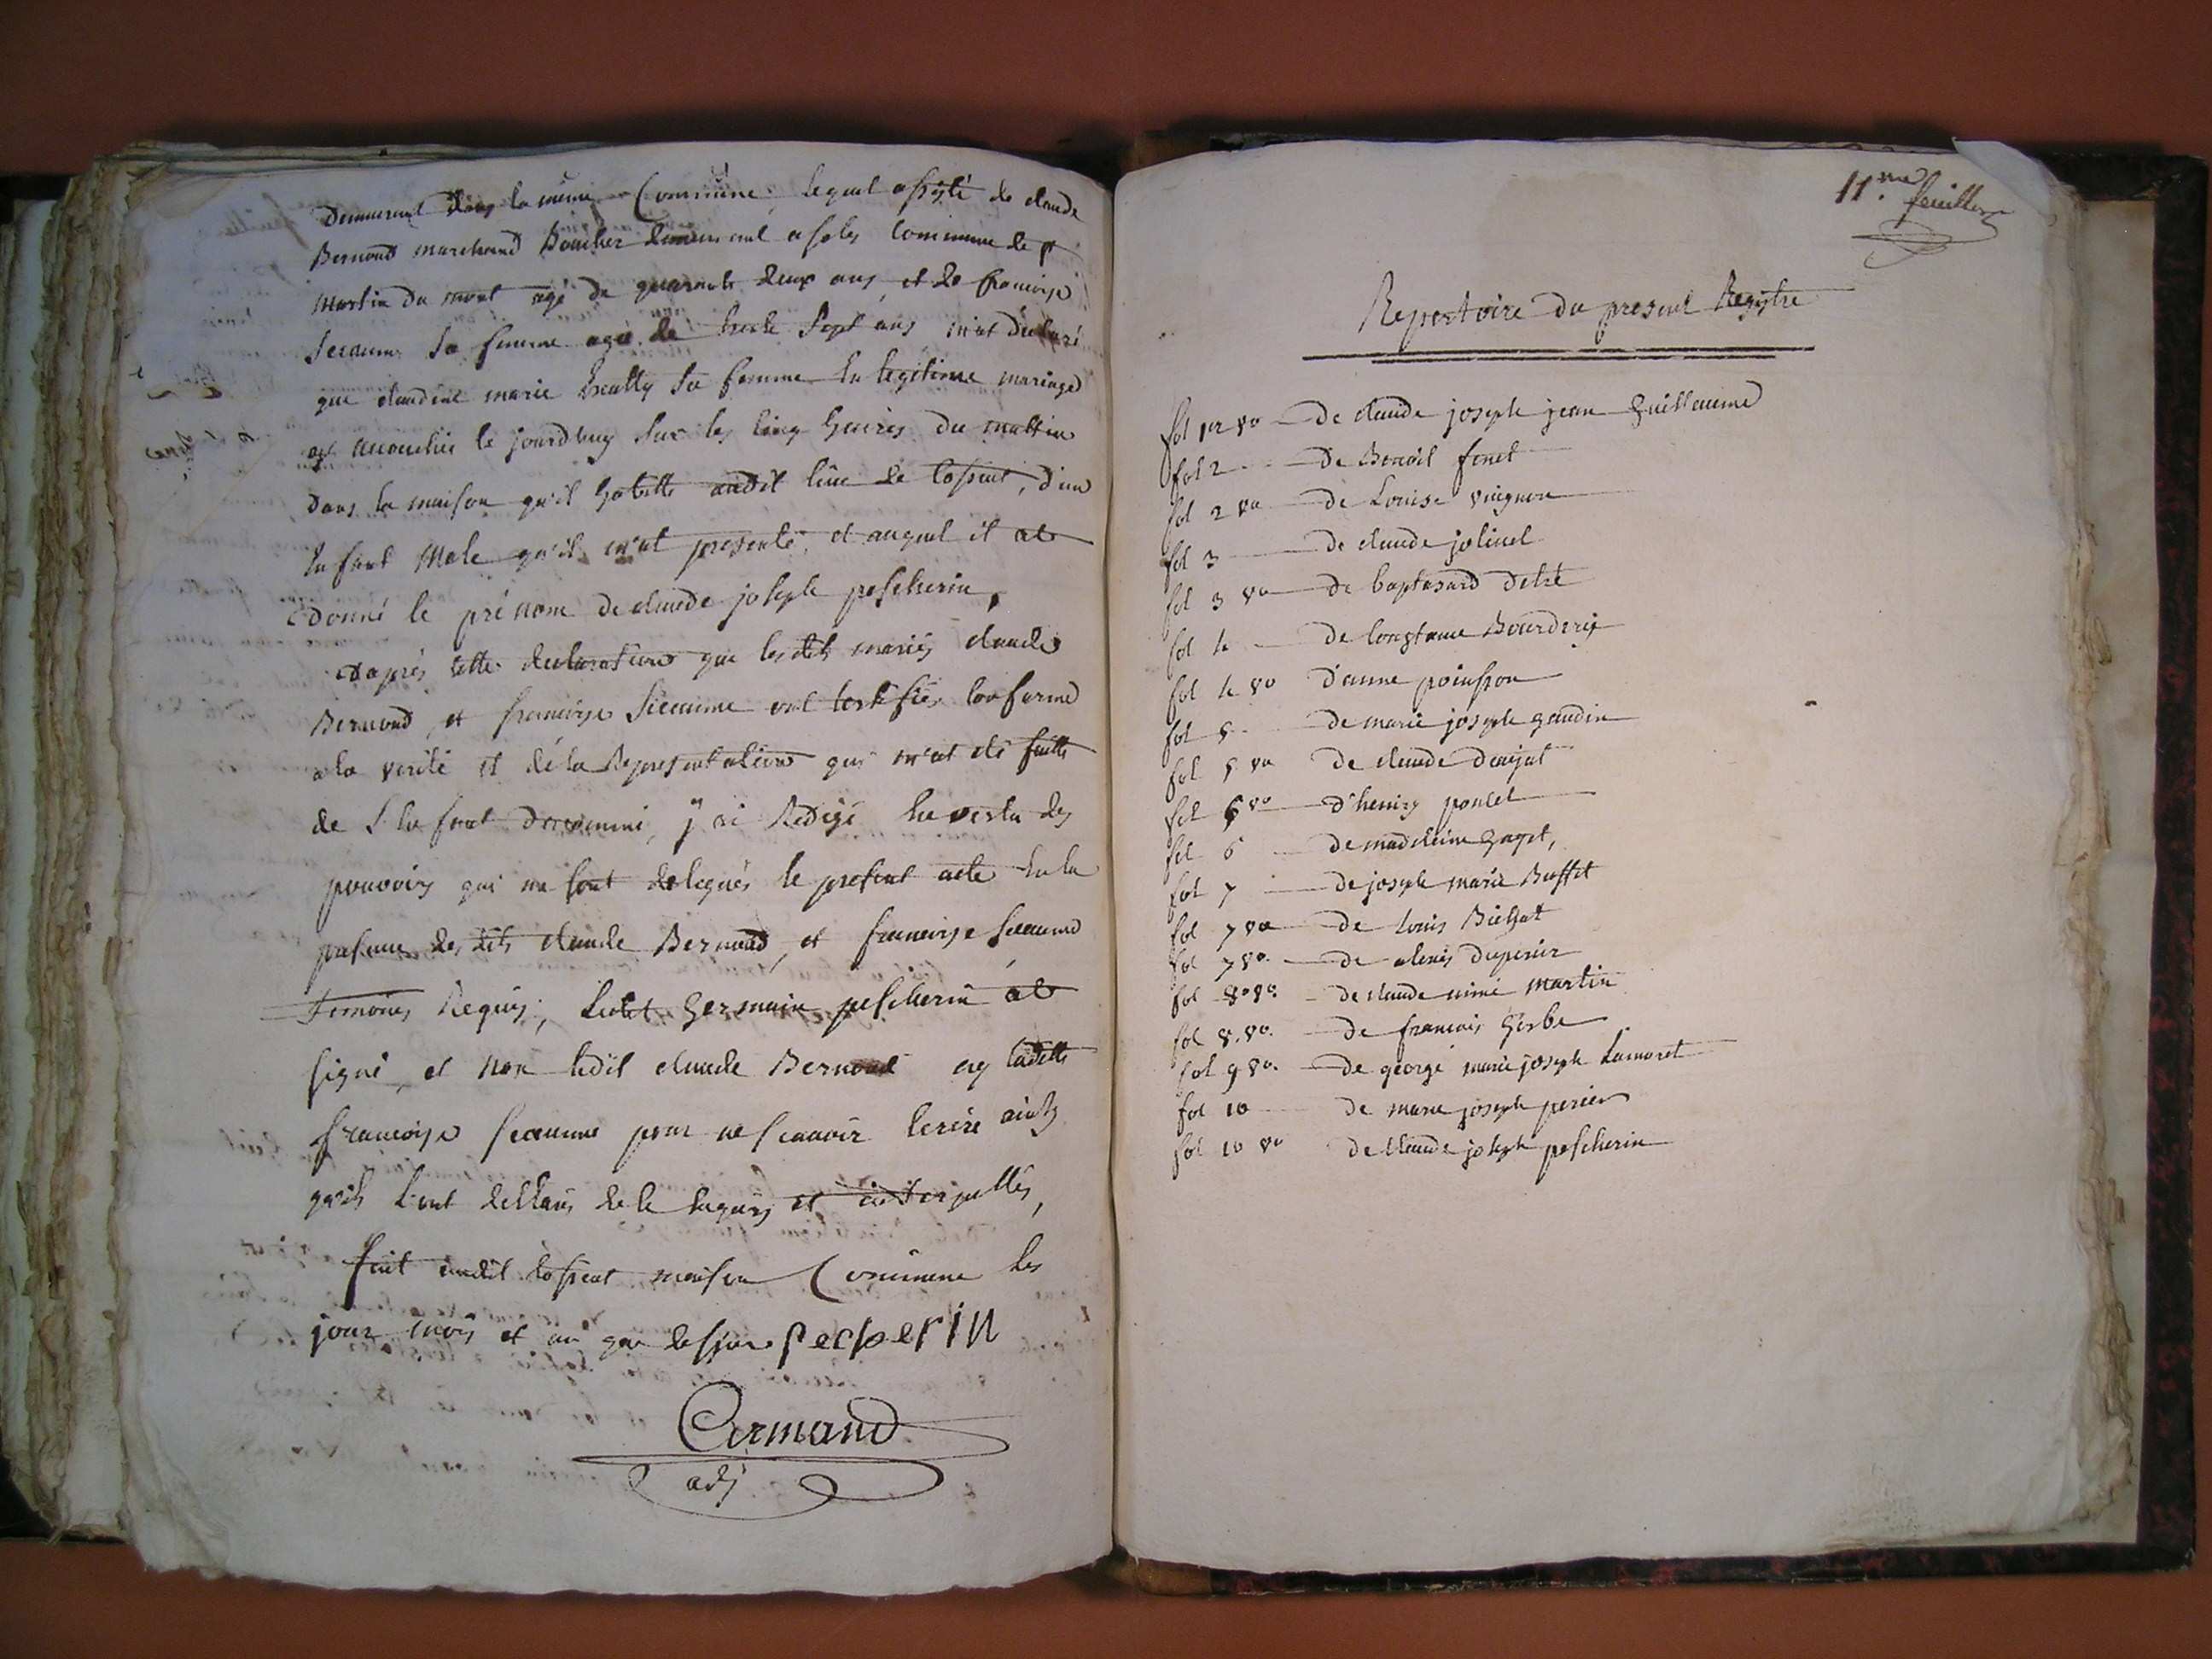 Demeurant dans la même Commune, lequel assisté de claude
Bernoud marchand Boucher demeurant a soles Commune de st
martin du mont agé de quarante deux ans, et de francoise
Secaume sa femme agée de trente sept ans m'at déclaré
que claudine marie sa femme En legitime mariage
est accouchée le jourdhuy sur les cinq heures du mattin
dans la maison qu'il habitte audit lieu de tossiat, d'un
Enfant Male qu'il m'at presenté, et auquel il at
donné le prénom de claude joseph pescherin,
d'aprés cette declaration que lesdits mariés claude
Bernoud, et francoise Secaume ont certifiée Conforme
a la verité et de la Representation qui m'at été faitte
de l'Enfant denommé, j'ai Redigé En vertu des
pouvoirs qui me sont delegués le present acte En la
presence desdits claude Bernoud, et francoise Secaume
Temoins Requis; ledit Germain pescherin at
signé, et non ledit claude Bernoud ny ladite
francoise Secaume pour ne scauoir Ecrire ainsy
qu'ils L'ont dellaré de ce Enquis et interpellés,
fait audit tossiat maison Commune les
jour mois et an que dessus pecherin
Armand
adj
11.me feuillet
Repertoire du present Registre
fol 1er vo De claude joseph jean Guillaume
fol 2 De Benoit finet
fol 2 vo De Louise vuignon
fol 3 De claude jolivet
fol 3 vo De baptasard
fol 4 De Constance Bourderis
fol 4 vo D'anne poinsson
fol 5 De marie joseph gaudin
fol 5 vo De claude
fol 6 vo D'henrz poncet
fol 6 De madeleine Gaget,
fol 7 De joseph marie Buffet
fol 7 vo De Louis Bichat
fol 7 vo. De alexis duperier
fol 8 vo. De claude aimé martin
fol 8. vo. De francois Gerbe
fol 9 vo. De george marie joseph Lamoret
fol 10 De marie joseph perier
fol 10 vo De Claude joseph pescherin